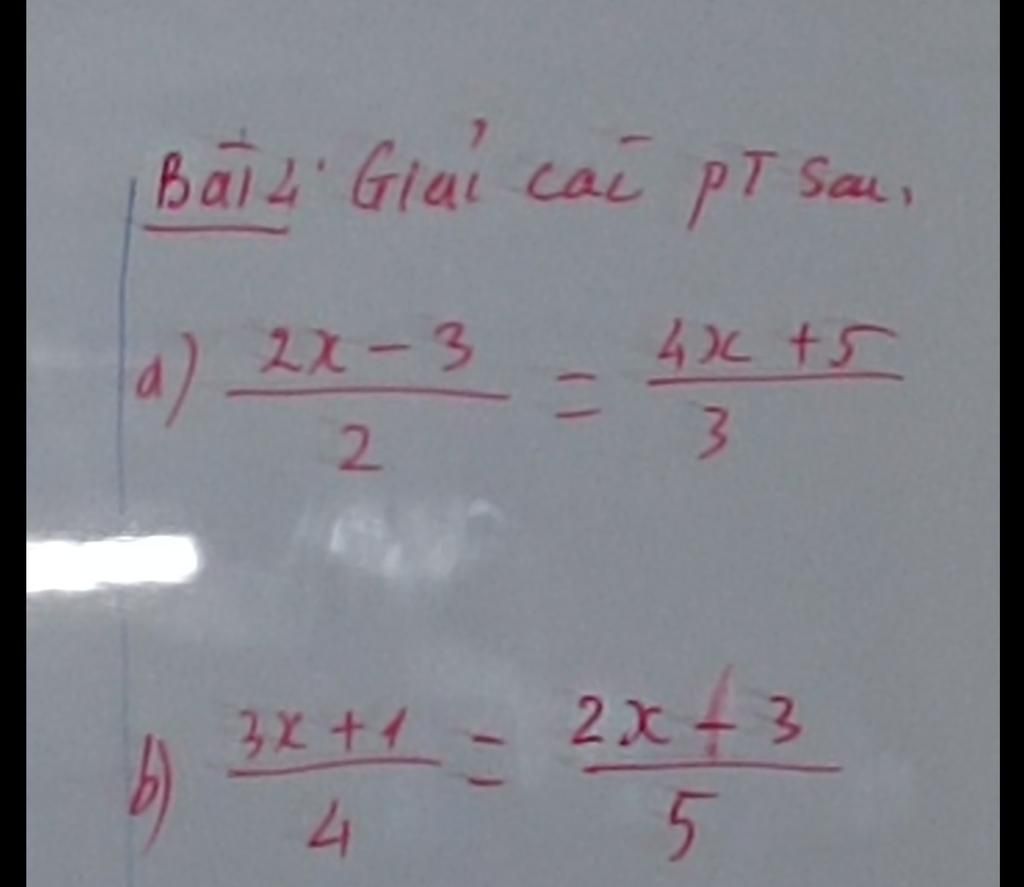 Bài 4: Giải các pT sau.
a) \frac{2x-3}{2} = \frac{4x+5}{3}
b) \frac{3x+1}{4} = \frac{2x+3}{5}